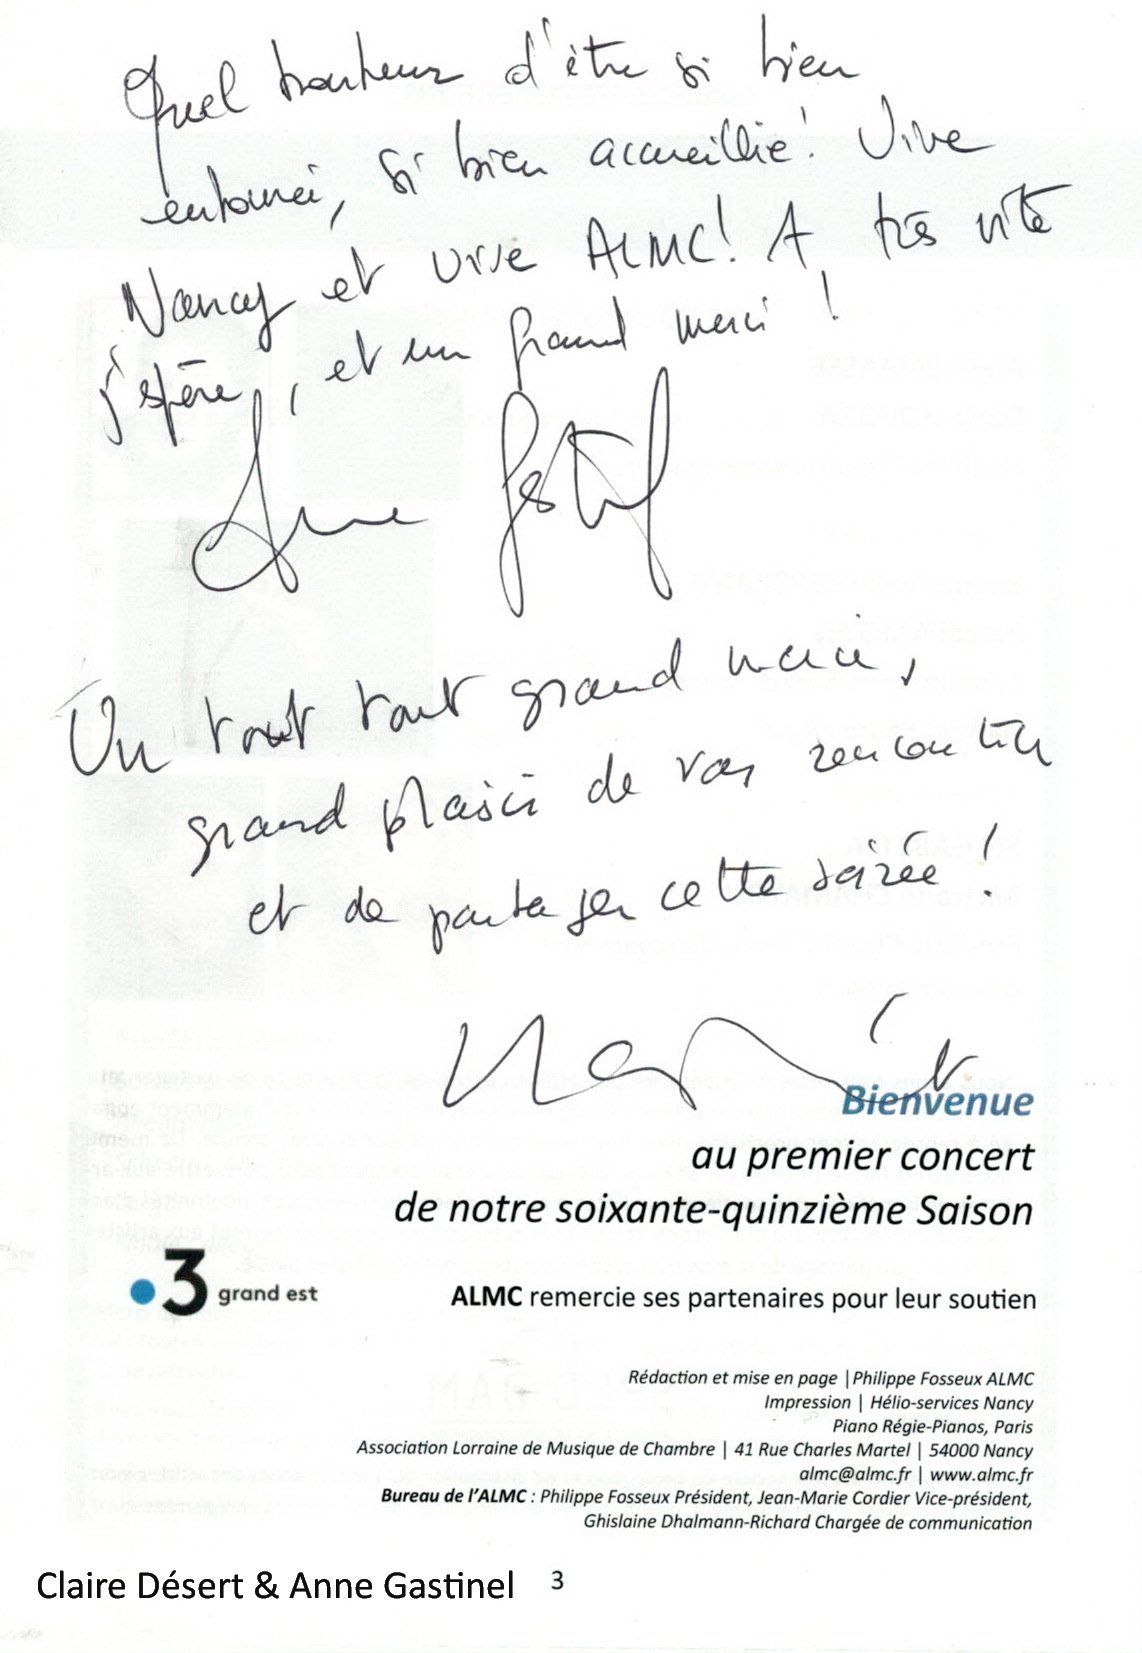 Quel bonheur d'être si bien
entourée, si bien accueillie! Vive
Nancy et vive ALMC! A très vite
j'espère, et un grand merci!
Anne Gastinel
Un tout tout grand merci,
grand plaisir de vous rencontrer
et de partager cette soirée!
Bienvenue
au premier concert
de notre soixante-quinzième Saison
3 grand est
ALMC remercie ses partenaires pour leur soutien
Rédaction et mise en page |Philippe Fosseux ALMC
Impression | Hélio-services Nancy
Piano Régie-Pianos, Paris
Association Lorraine de Musique de Chambre | 41 Rue Charles Martel | 54000 Nancy
almc@almc.fr | www.almc.fr
Bureau de l'ALMC : Philippe Fosseux Président, Jean-Marie Cordier Vice-président,
Ghislaine Dhalmann-Richard Chargée de communication
Claire Désert & Anne Gastinel 3